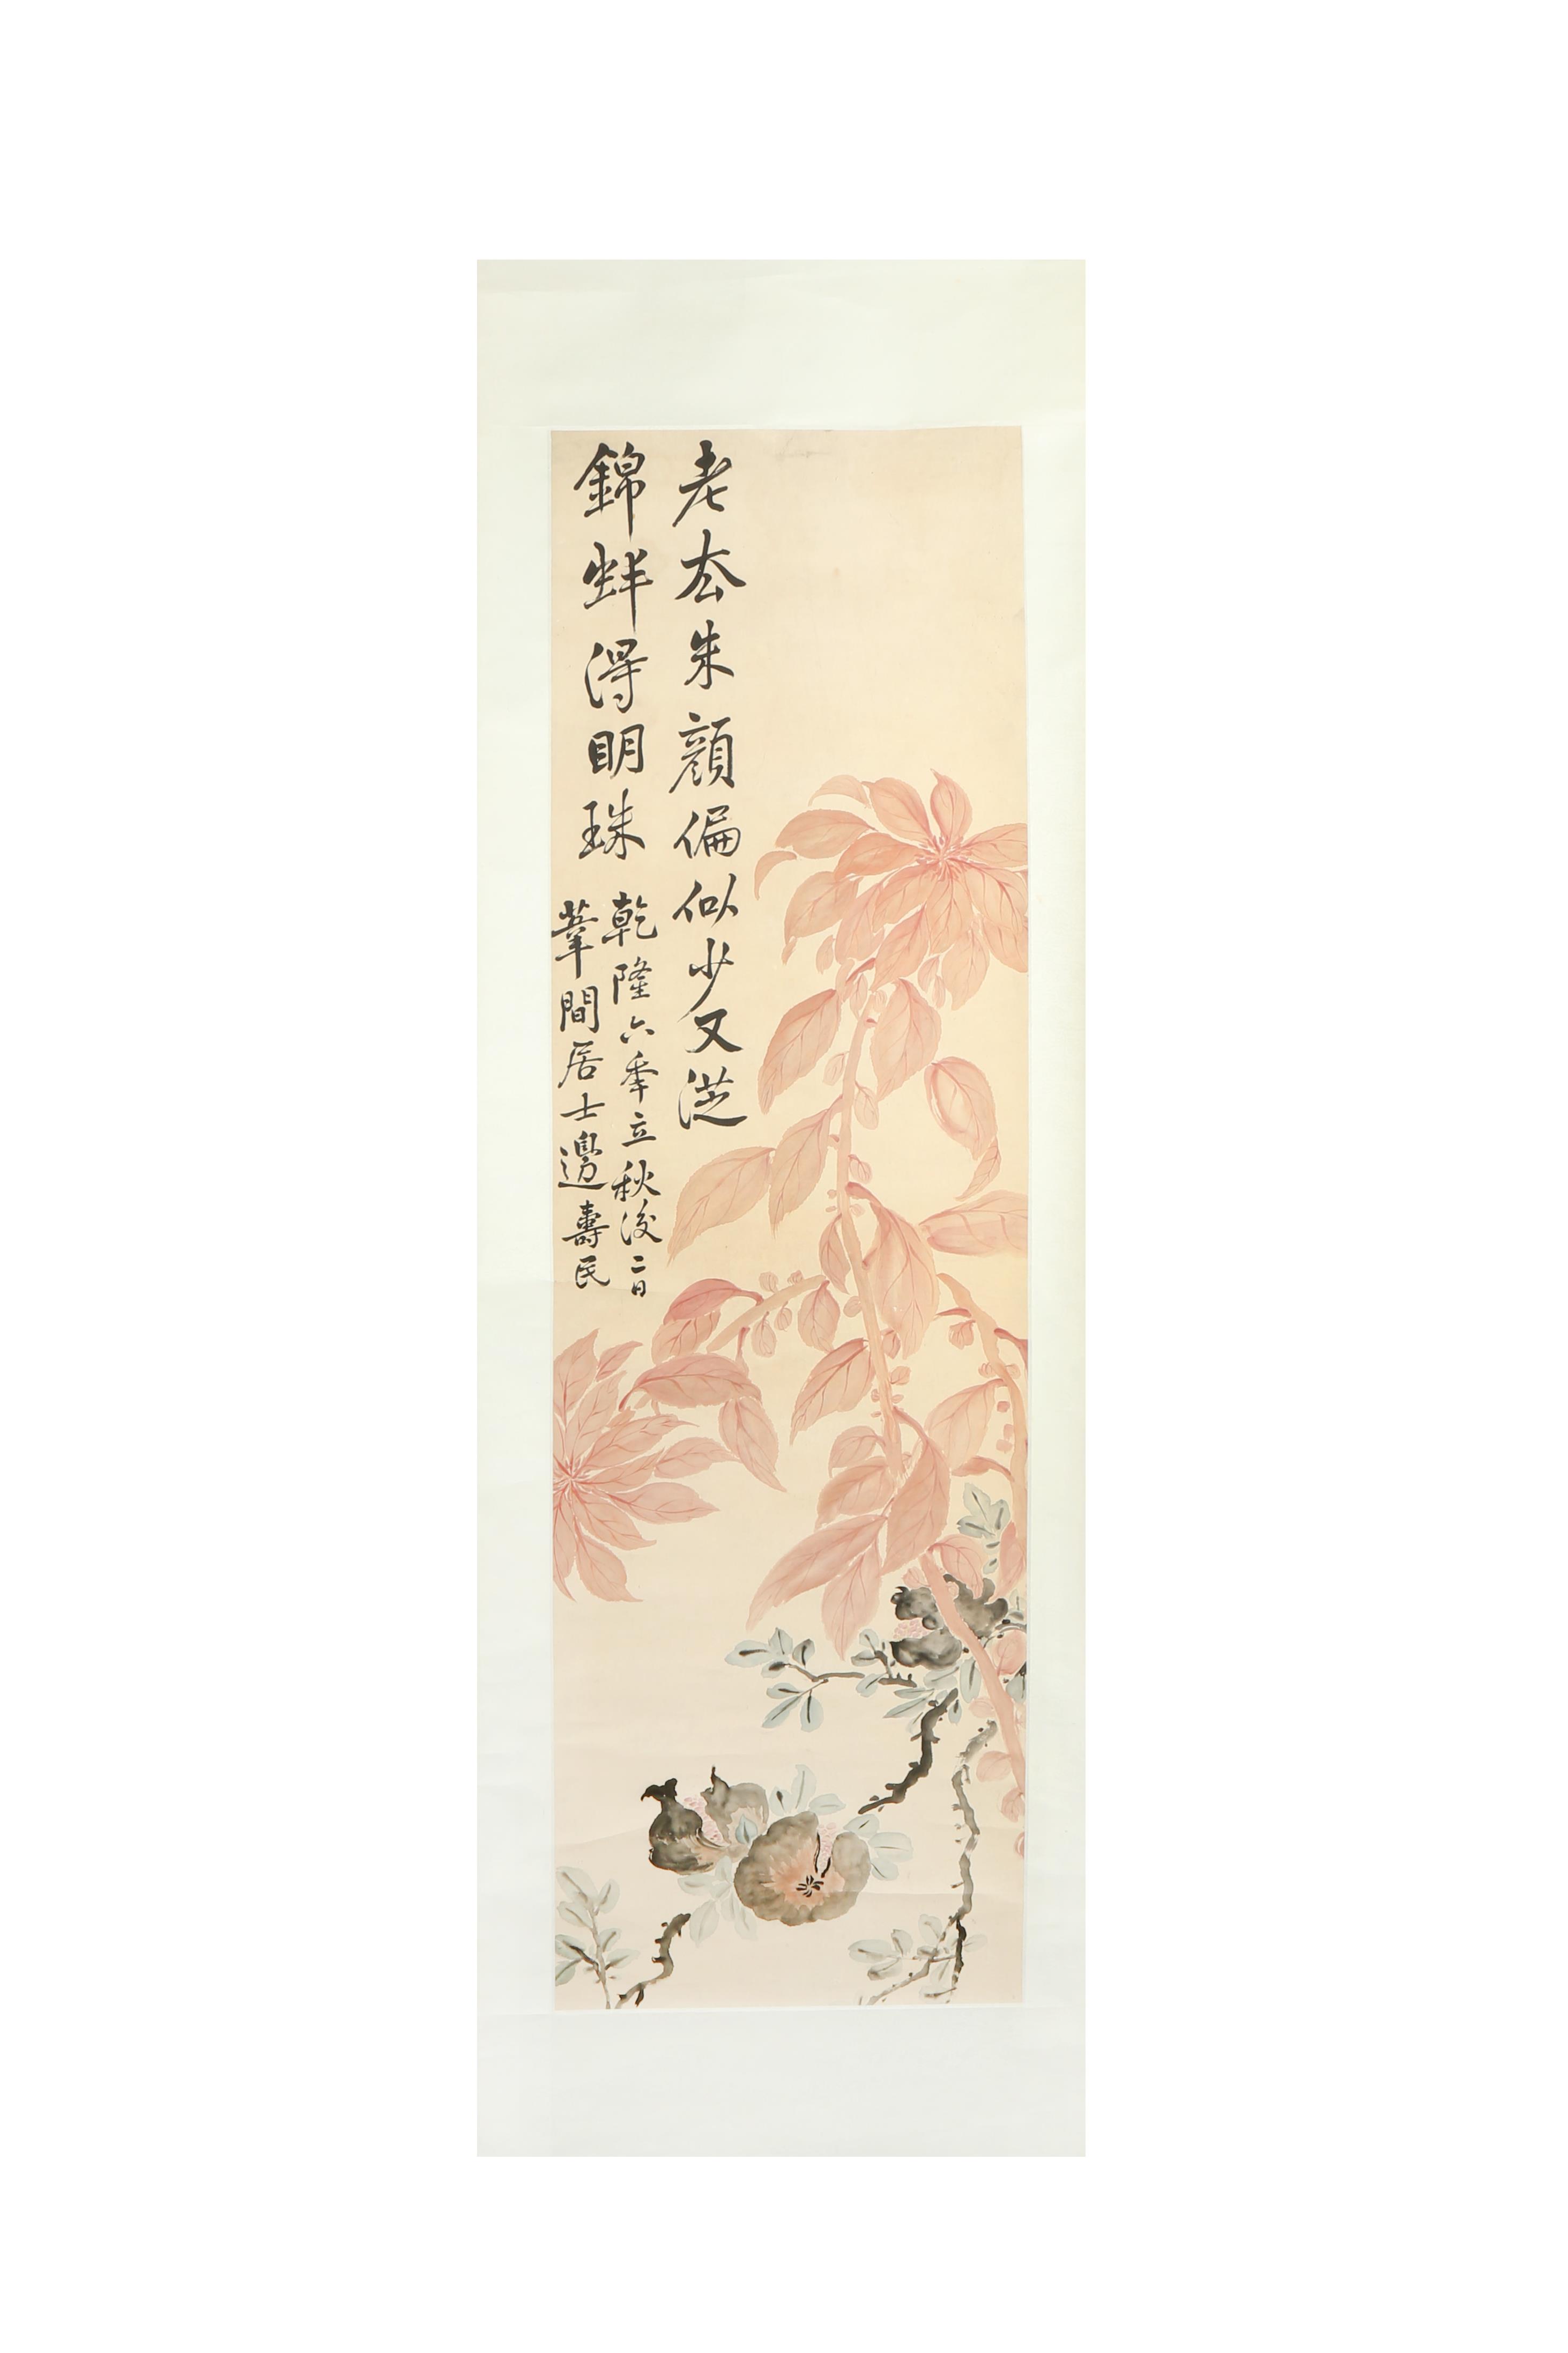 老去朱顔偏似少又從
錦蚌得明珠
乾隆六季立秋後二日
葦間居士邊壽民